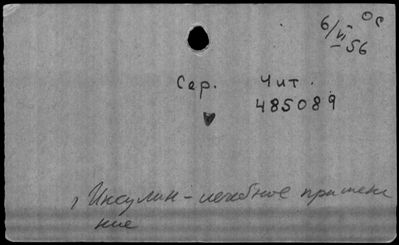 6/VI-56
Сер. Чит.
485089
Инсулин – лечебное примене
ние